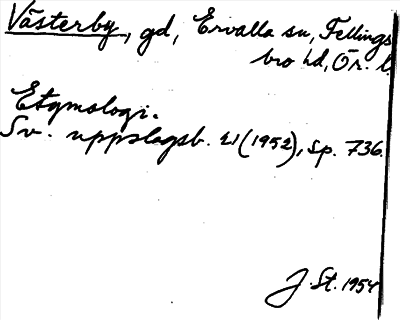 Västerby, gd, Ervalla sn, Fellings
bro hd, Ör. l.
Etymologi.
Sv. uppslagsb. 21 (1952), sp. 736.
J. St. 1954